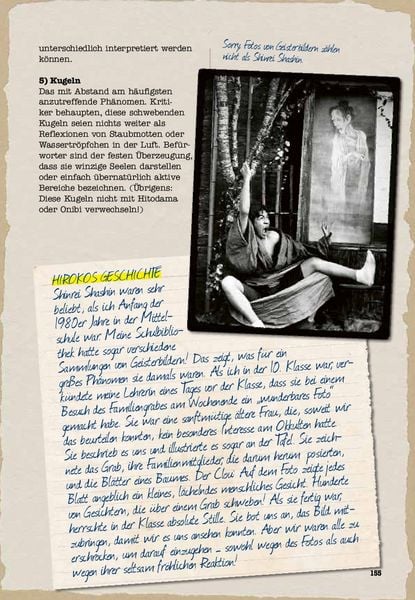 unterschiedlich interpretiert werden
können.
Sorry, Fotos von Geisterbildern zählen
nicht als Shinrei Shashin.
5) Kugeln
Das mit Abstand am häufigsten
anzutreffende Phänomen. Kriti-
ker behaupten, diese schwebenden
Kugeln seien nichts weiter als
Reflexionen von Staubmotten oder
Wassertröpfchen in der Luft. Befür-
worter sind der festen Überzeugung,
dass sie winzige Seelen darstellen
oder einfach übernatürlich aktive
Bereiche bezeichnen. (Übrigens:
Diese Kugeln nicht mit Hitodama
oder Onibi verwechseln!)
HIROKOS GESCHICHTE
Shinrei Shashin waren sehr
beliebt, als ich Anfang der
1980er Jahre in der Mittel-
schule war. Meine Schulbiblio-
thek hatte sogar verschiedene
Sammlungen von Geisterbildern! Das zeigt, was für ein
großes Phänomen sie damals waren. Als ich in der 10. Klasse war, ver-
kündete meine Lehrerin eines Tages vor der Klasse, dass sie bei einem
Besuch des Familiengrabes am Wochenende ein „wunderbares Foto"
gemacht habe. Sie war eine sanftmütige ältere Frau, die, soweit wir
das beurteilen konnten, kein besonderes Interesse am Okkulten hatte.
Sie beschrieb es uns und illustrierte es sogar an der Tafel. Sie zeich-
nete das Grab, ihre Familienmitglieder, die darum herum posierten,
und die Blätter eines Baumes. Der Clou: Auf dem Foto zeigte jedes
Blatt angeblich ein kleines, lächelndes menschliches Gesicht. Hunderte
von Gesichtern, die über einem Grab schweben! Als sie fertig war,
herrschte in der Klasse absolute Stille. Sie bot uns an, das Bild mit-
zubringen, damit wir es uns ansehen konnten. Aber wir waren alle zu
erschrocken, um darauf einzugehen – sowohl wegen des Fotos als auch
wegen ihrer seltsam fröhlichen Reaktion!
155